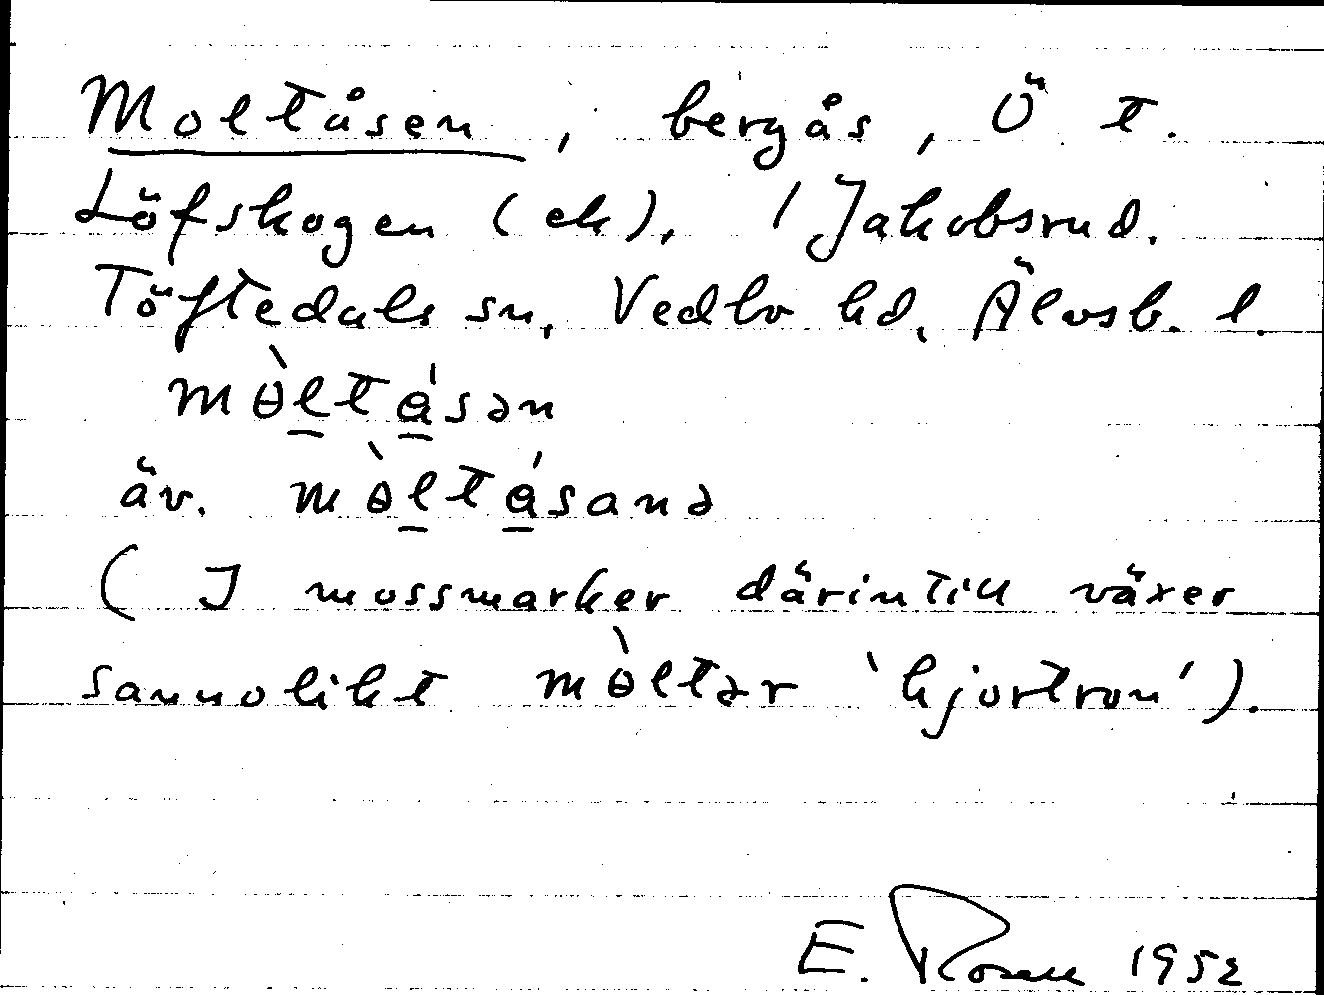 Moltåsen, bergås, Ö t.
Löfskogen (ek), 1 Jakobsrud.
Töftedals sn, Vedbo hd, Älvsb. l.
mə̀ltǻsən
äv. mə̀ltǻsanə
(I mossmarker därintill växer
sannolikt mə̀ltər 'hjortron').
E. Rosell 1952